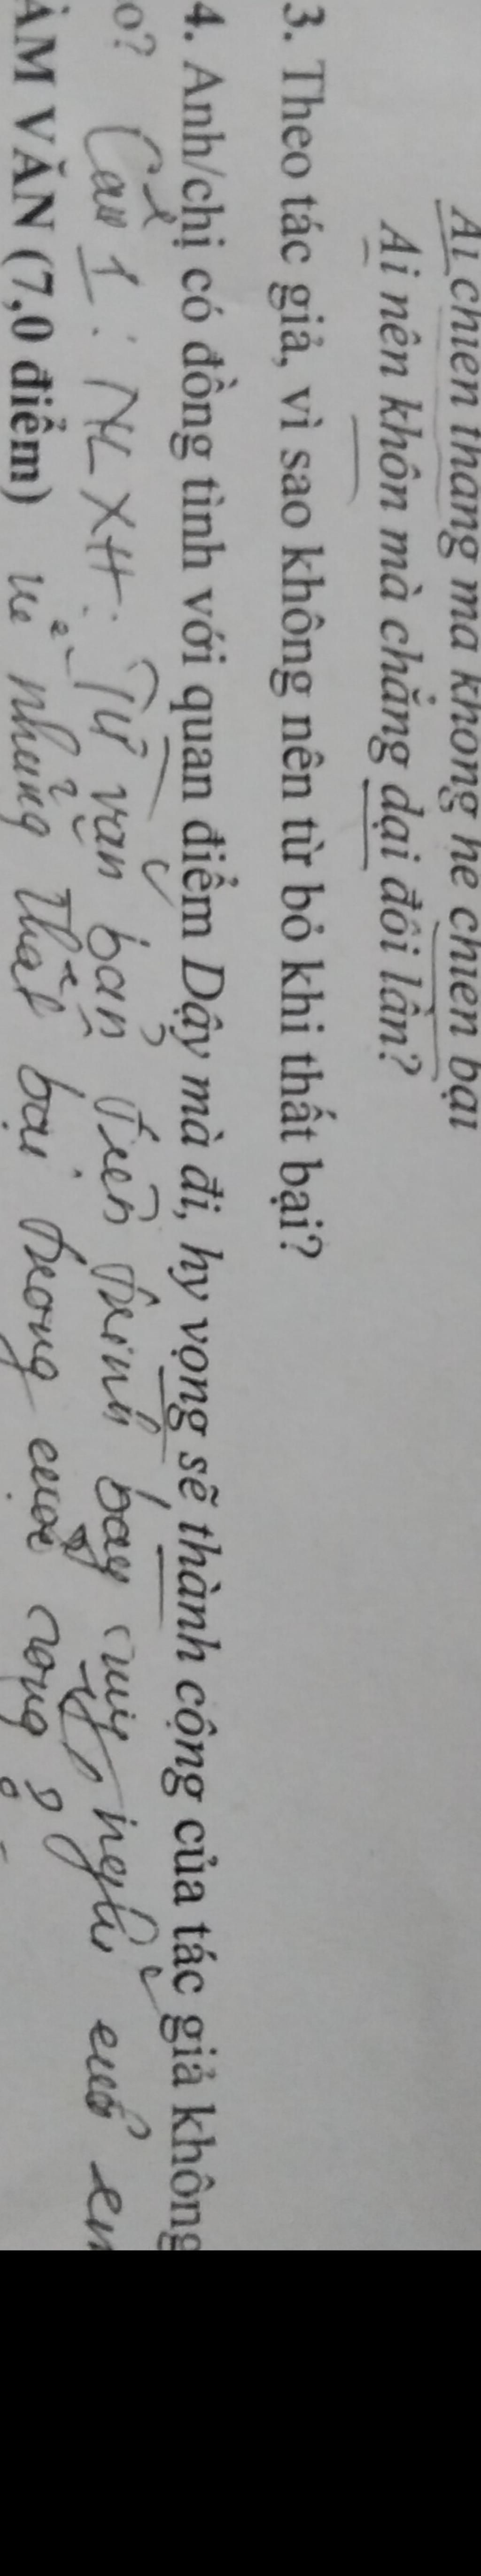 Ai chiến thắng mà không hề chiến bại
Ai nên khôn mà chẳng dại đôi lần?
3. Theo tác giả, vì sao không nên từ bỏ khi thất bại?
4. Anh/chị có đồng tình với quan điểm Dậy mà đi, hy vọng sẽ thành công của tác giả không
o?
Câu 1: NLXH: Từ văn bản trên trình bày suy nghĩ của em
ÀM VĂN (7,0 điểm)
về những thất bại trong cuộc sống?